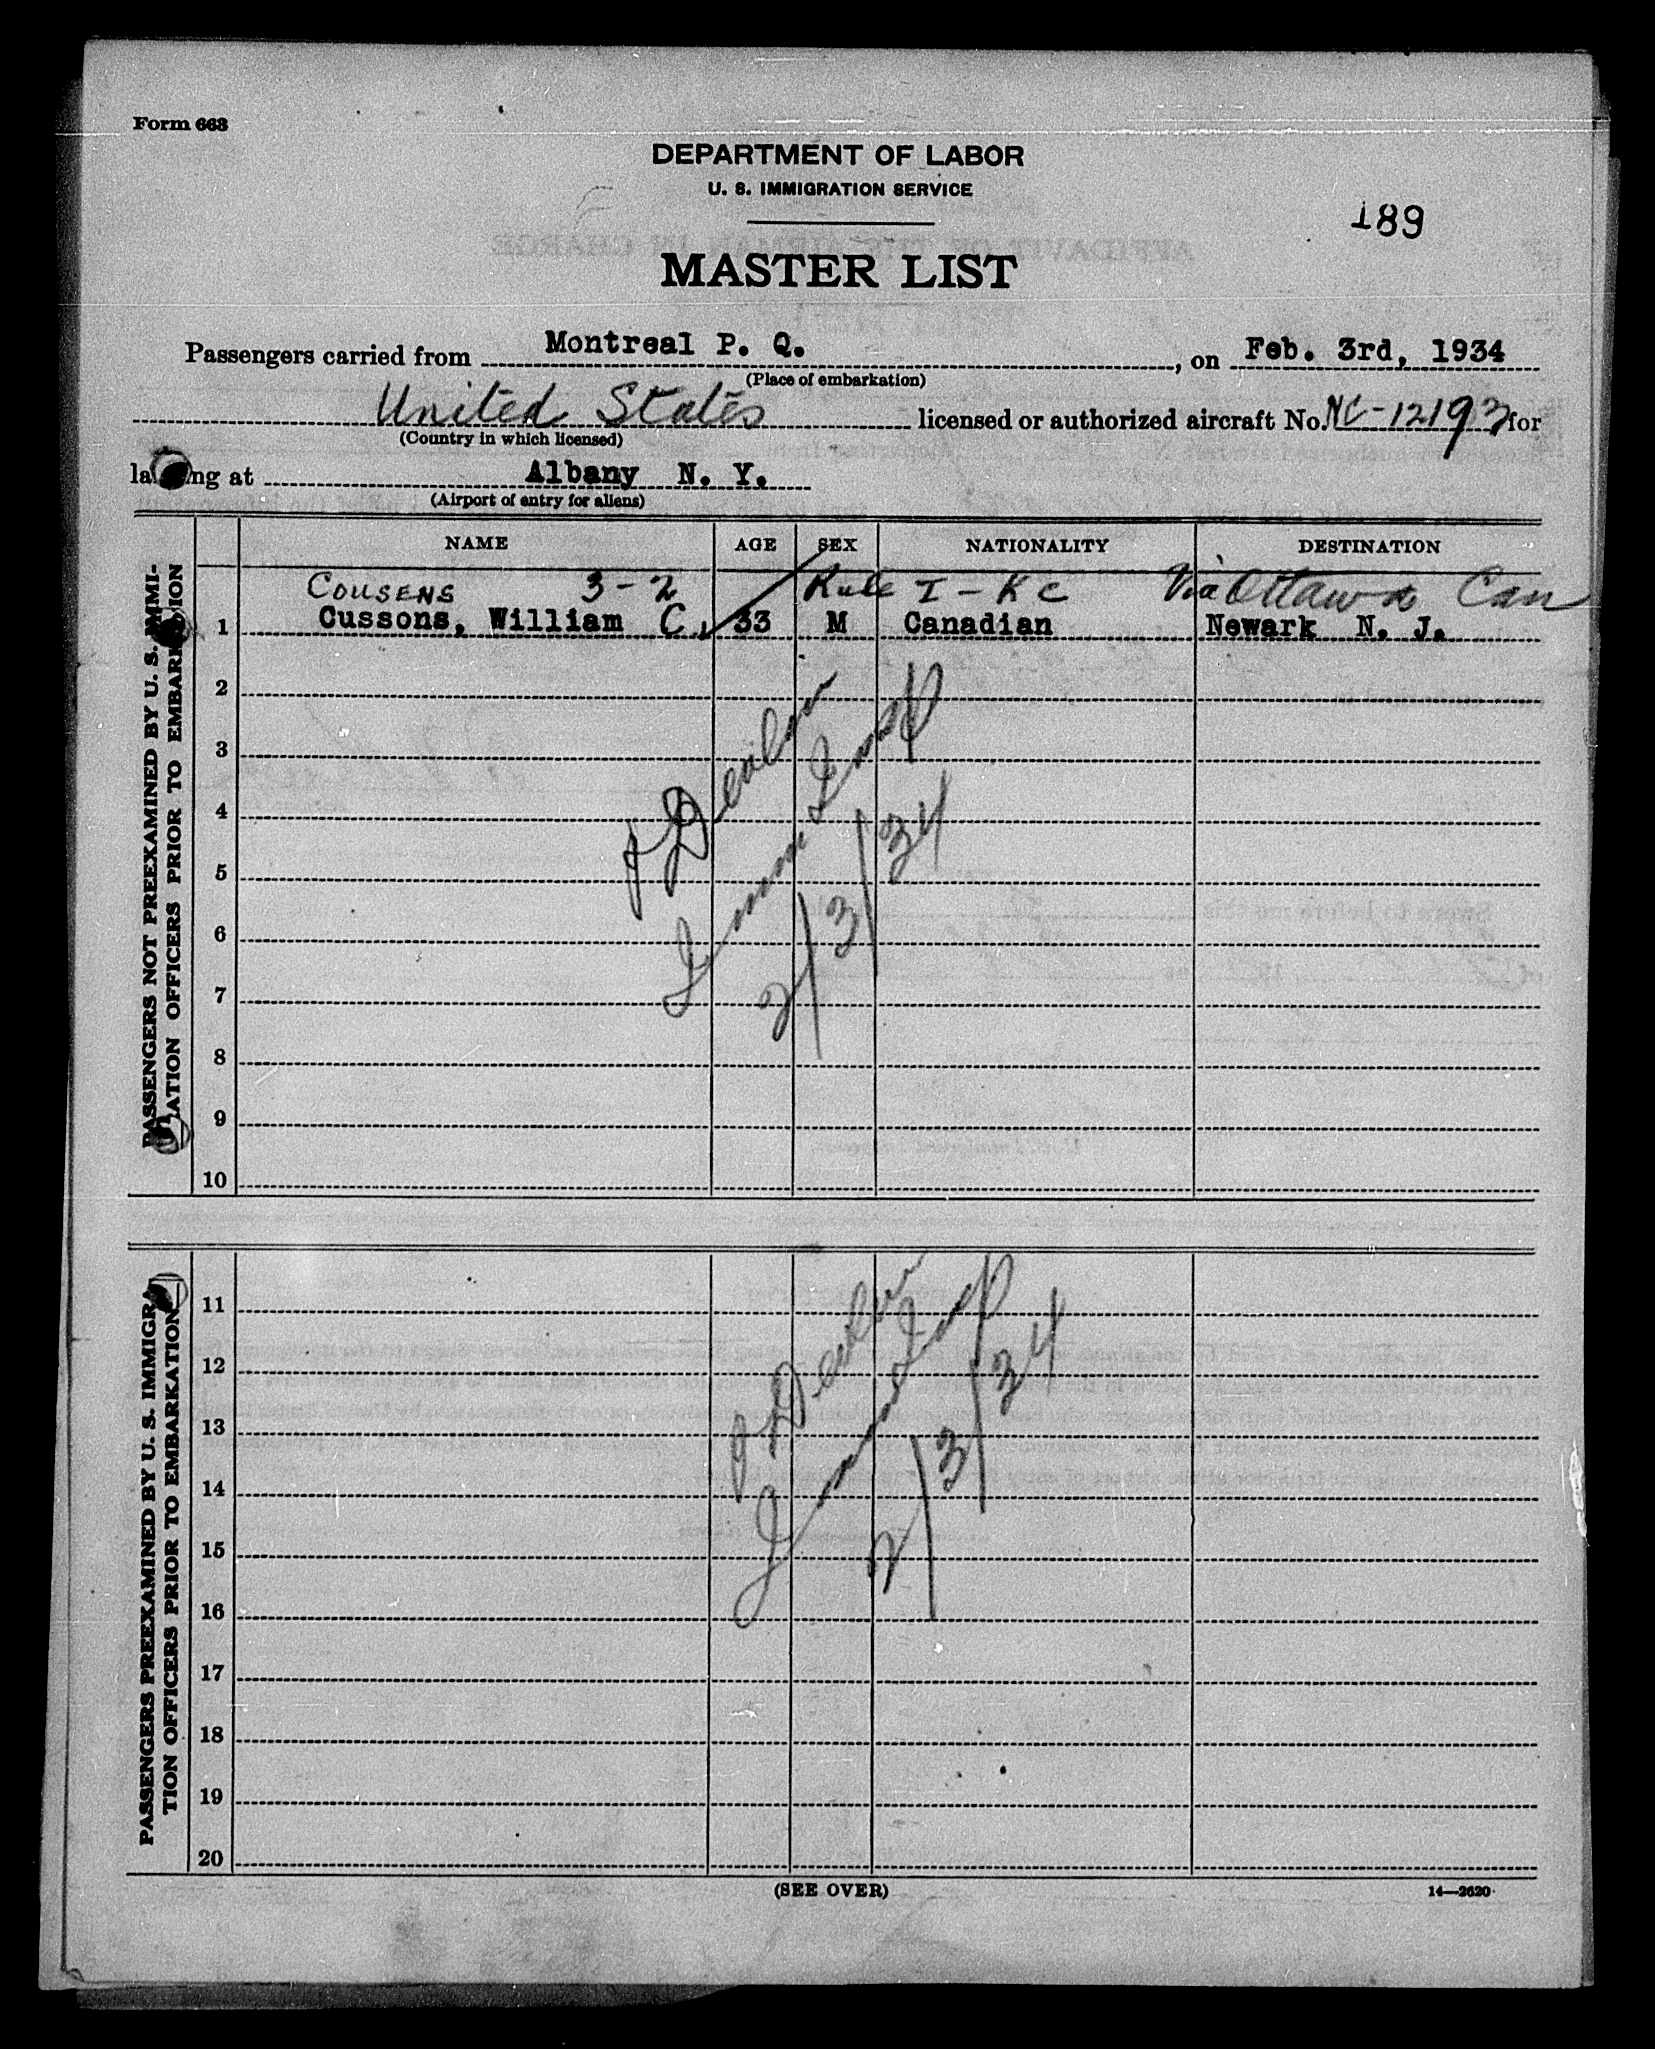 Form 663
DEPARTMENT OF LABOR
U. S. IMMIGRATION SERVICE
189
MASTER LIST
Passengers carried from Montreal P. Q., on Feb. 3rd, 1934
(Place of embarkation)
United States licensed or authorized aircraft No. NC-12193 for
(Country in which licensed)
landing at Albany N. Y.
(Airport of entry for aliens)
NAME AGE SEX NATIONALITY DESTINATION
COUSENS 3-2 Rule I - KC Via Ottawa Can
1 Cussons, William C. 33 M Canadian Newark N. J.
2
3
4
5
6
7
8
9
10
PASSENGERS NOT PREEXAMINED BY U. S. IMMI-
GRATION OFFICERS PRIOR TO EMBARKATION
Immn Insp
2/3/34
11
12
13
14
15
16
17
18
19
20
PASSENGERS PREEXAMINED BY U. S. IMMIGRA-
TION OFFICERS PRIOR TO EMBARKATION
Immn Insp
2/3/34
(SEE OVER)
14—2620